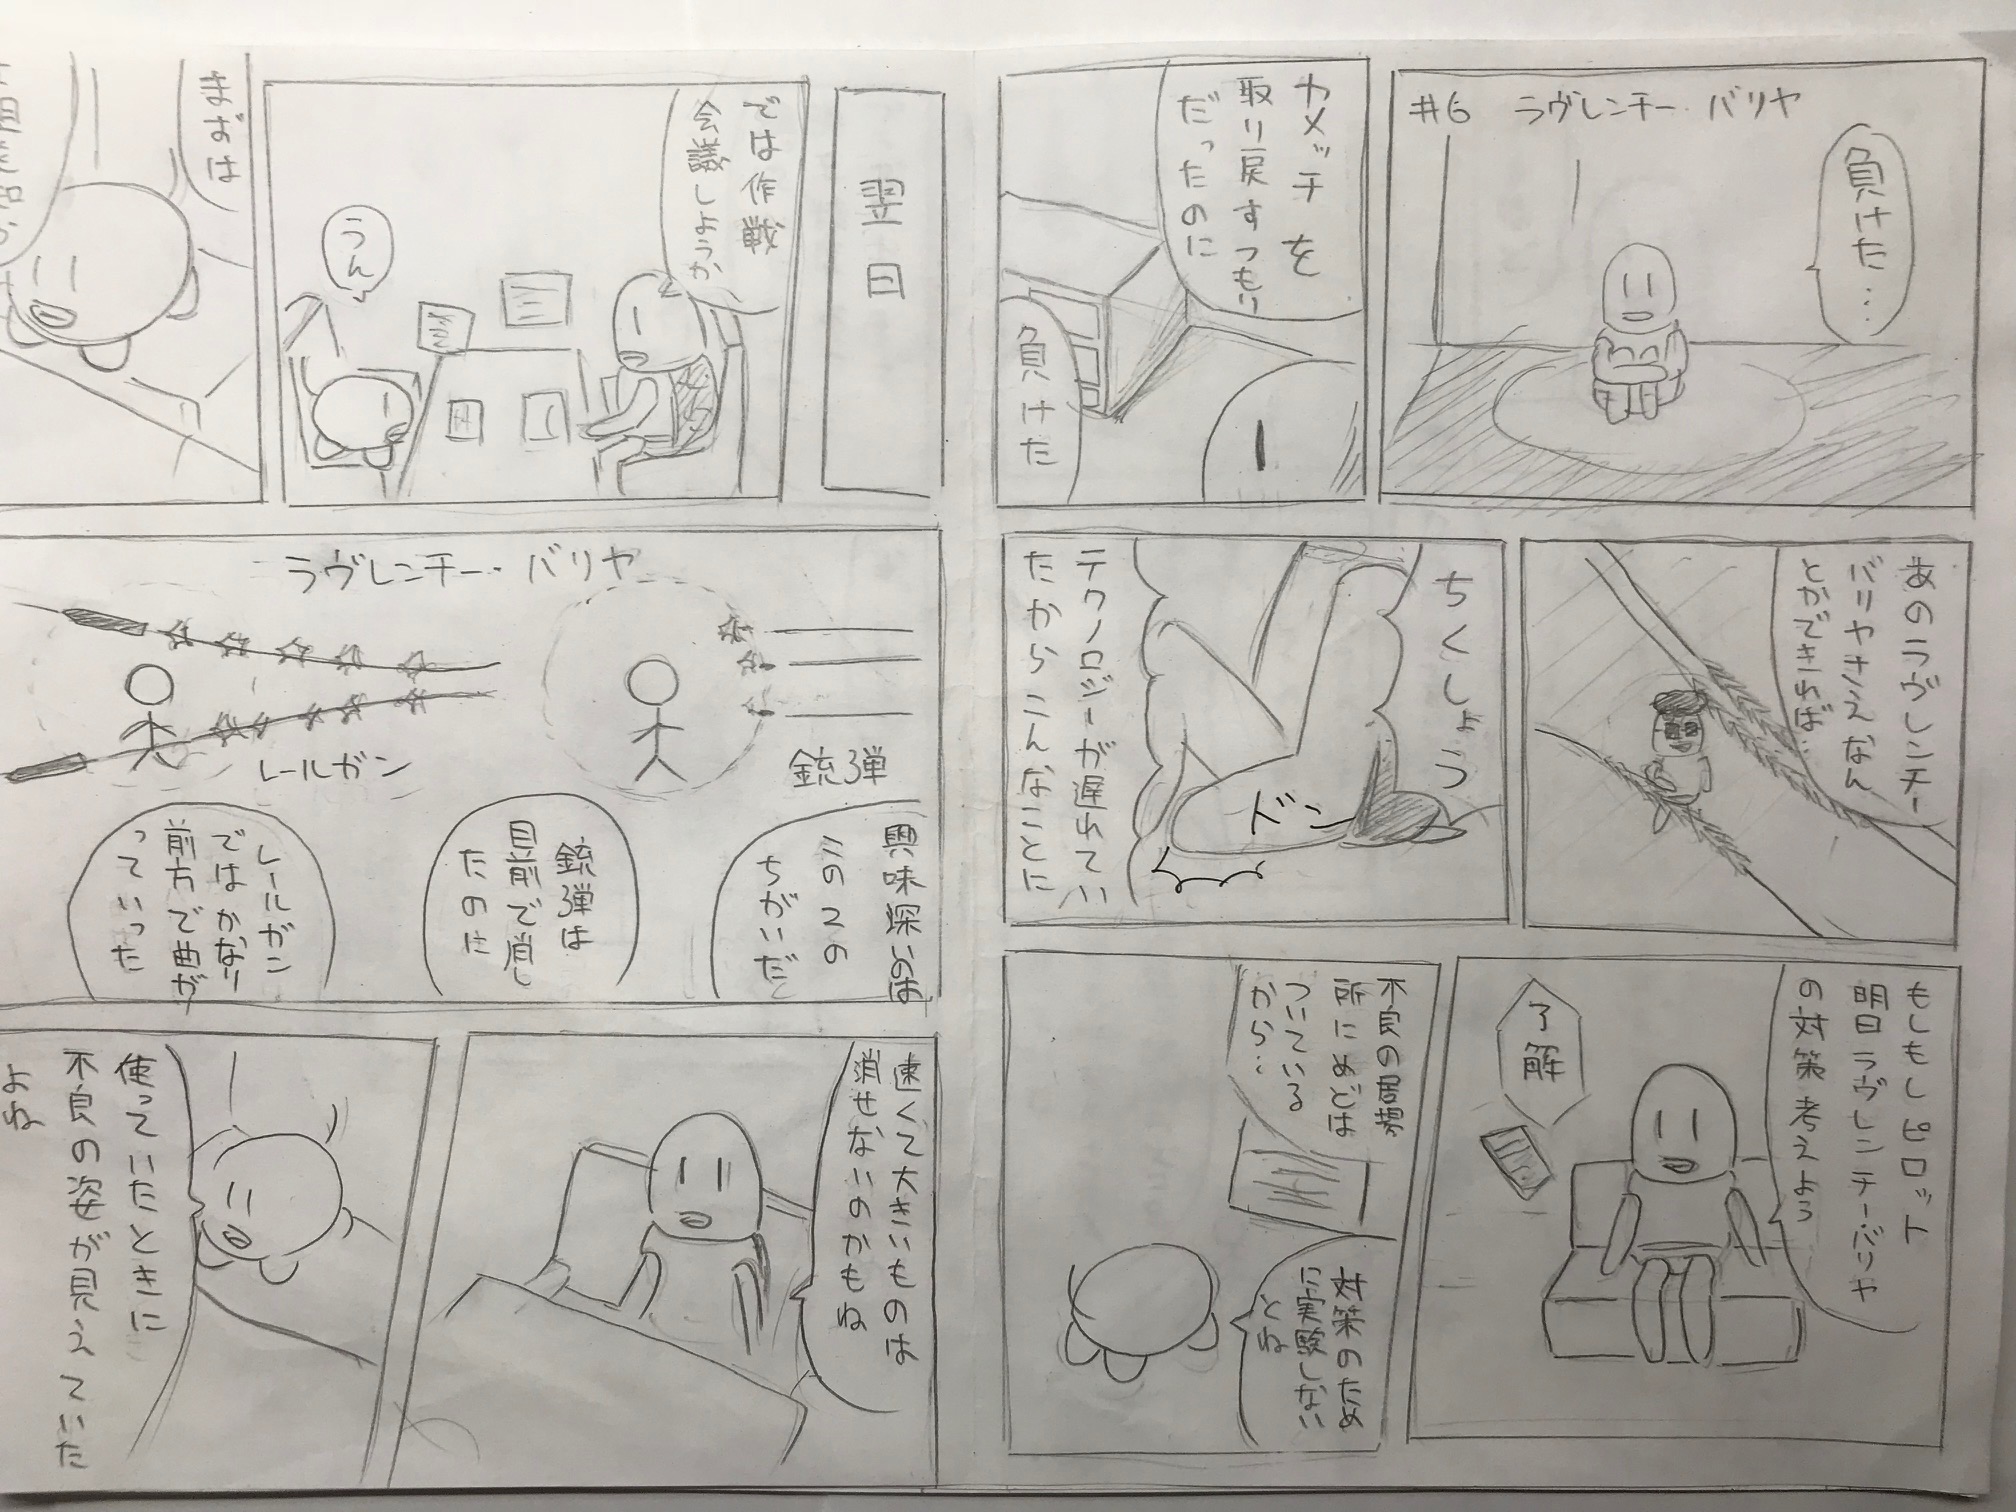 #6 ラヴレンチー・バリヤ
負けた…
カメッチを
取り戻すつもり
だったのに
負けた
あのラヴレンチー
バリヤさえなん
とかできれば…
ちくしょう
ドン
テクノロジーが遅れてい
たからこんなことに
もしもしピロット
明日ラヴレンチーバリヤ
の対策考えよう
了解
不良の居場
所にめどは
ついている
から…
対策のため
に実験しない
とね
翌日
では作戦
会議しようか
うん
まずは
ラヴレンチー・バリヤ
銃弾
レールガン
興味深いのは
この2つの
ちがいだ
銃弾は
目前で消し
たのに
レールガン
ではかなり
前方で曲が
っていった
速くて大きいものは
消せないのかもね
使っていたときに
不良の姿が見えていた
よね